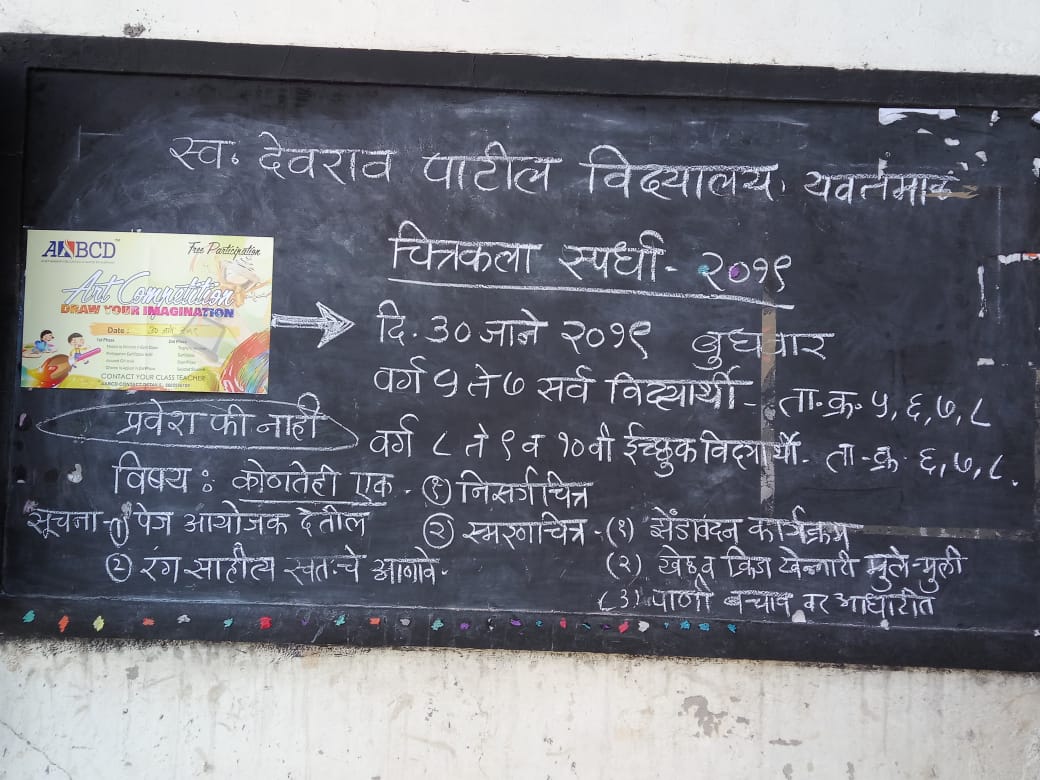 स्व. देवराव पाटील विद्यालय, यवतमाळ
चित्रकला स्पर्धा - २०१९
AABCD
Free Participation
Art Competition
DRAW YOUR IMAGINATION
Date : 30 जाने २०१९
1st Phase
CONTACT YOUR CLASS TEACHER
दि. 30 जाने २०१९ बुधवार
वर्ग 9 ते ७ सर्व विद्यार्थी - ता.क्र. ५,६,७,८
प्रवेश फी नाही
वर्ग ८ ते ९ व १० वी ईच्छुक विद्यार्थी - ता.क्र. ६,७,८.
विषय : कोणतेही एक - (१) निसर्गचित्र
सूचना - (1) पेज आयोजक देतील
(२) स्मरणचित्र - (१) झेंडावंदन कार्यक्रम
(२) रंग साहीत्य स्वत:चे आणावे.
(२) खेळ व क्रिडा खेळणारी मुले-मुली
(3) पाणी बचाव वर आधारीत